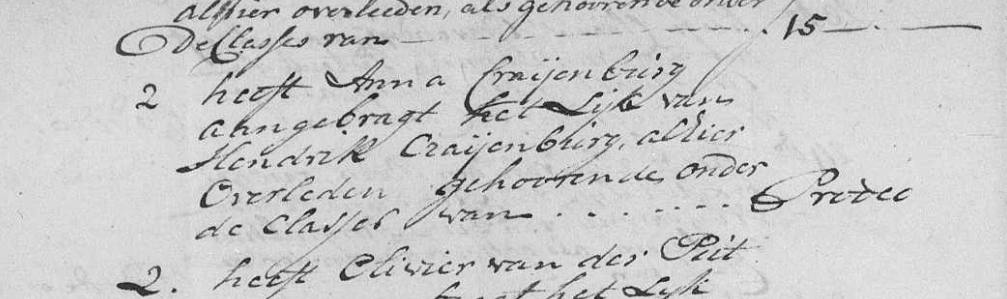 alhier overleeden, als gehoorende onder
de Classes van — — — . 15 — . —
2 heeft Anna Craijenburg
aangebragt het Lijk van
Hendrik Craijenburg, alhier
Overleden gehoorende onder
de Classes van . . . . . . . . Prodeo
2. heeft Olivier van der Put
het Lijk